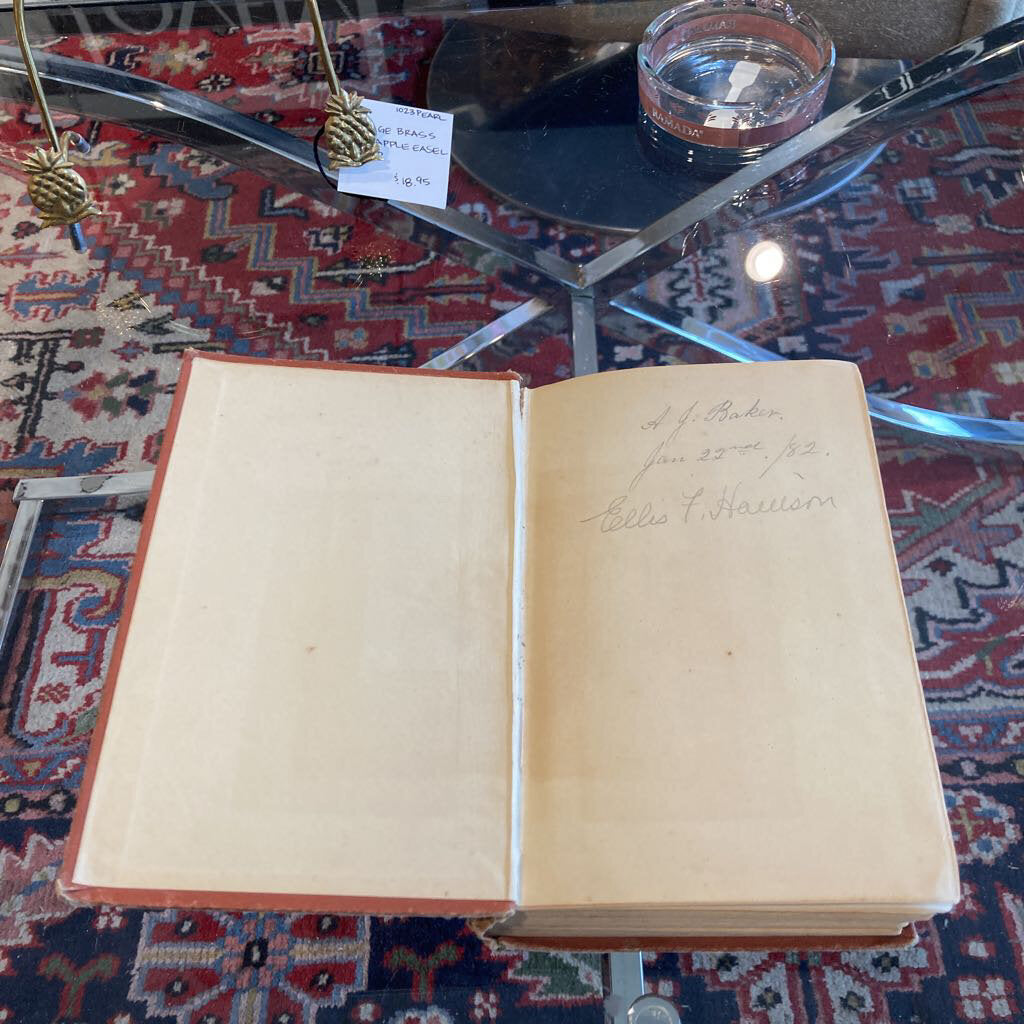 1023 PEARL
GE BRASS
APPLE EASEL
$18.95
RAMADA®
A J. Baker.
Jan 22nd /82.
Ellis F. Hanson